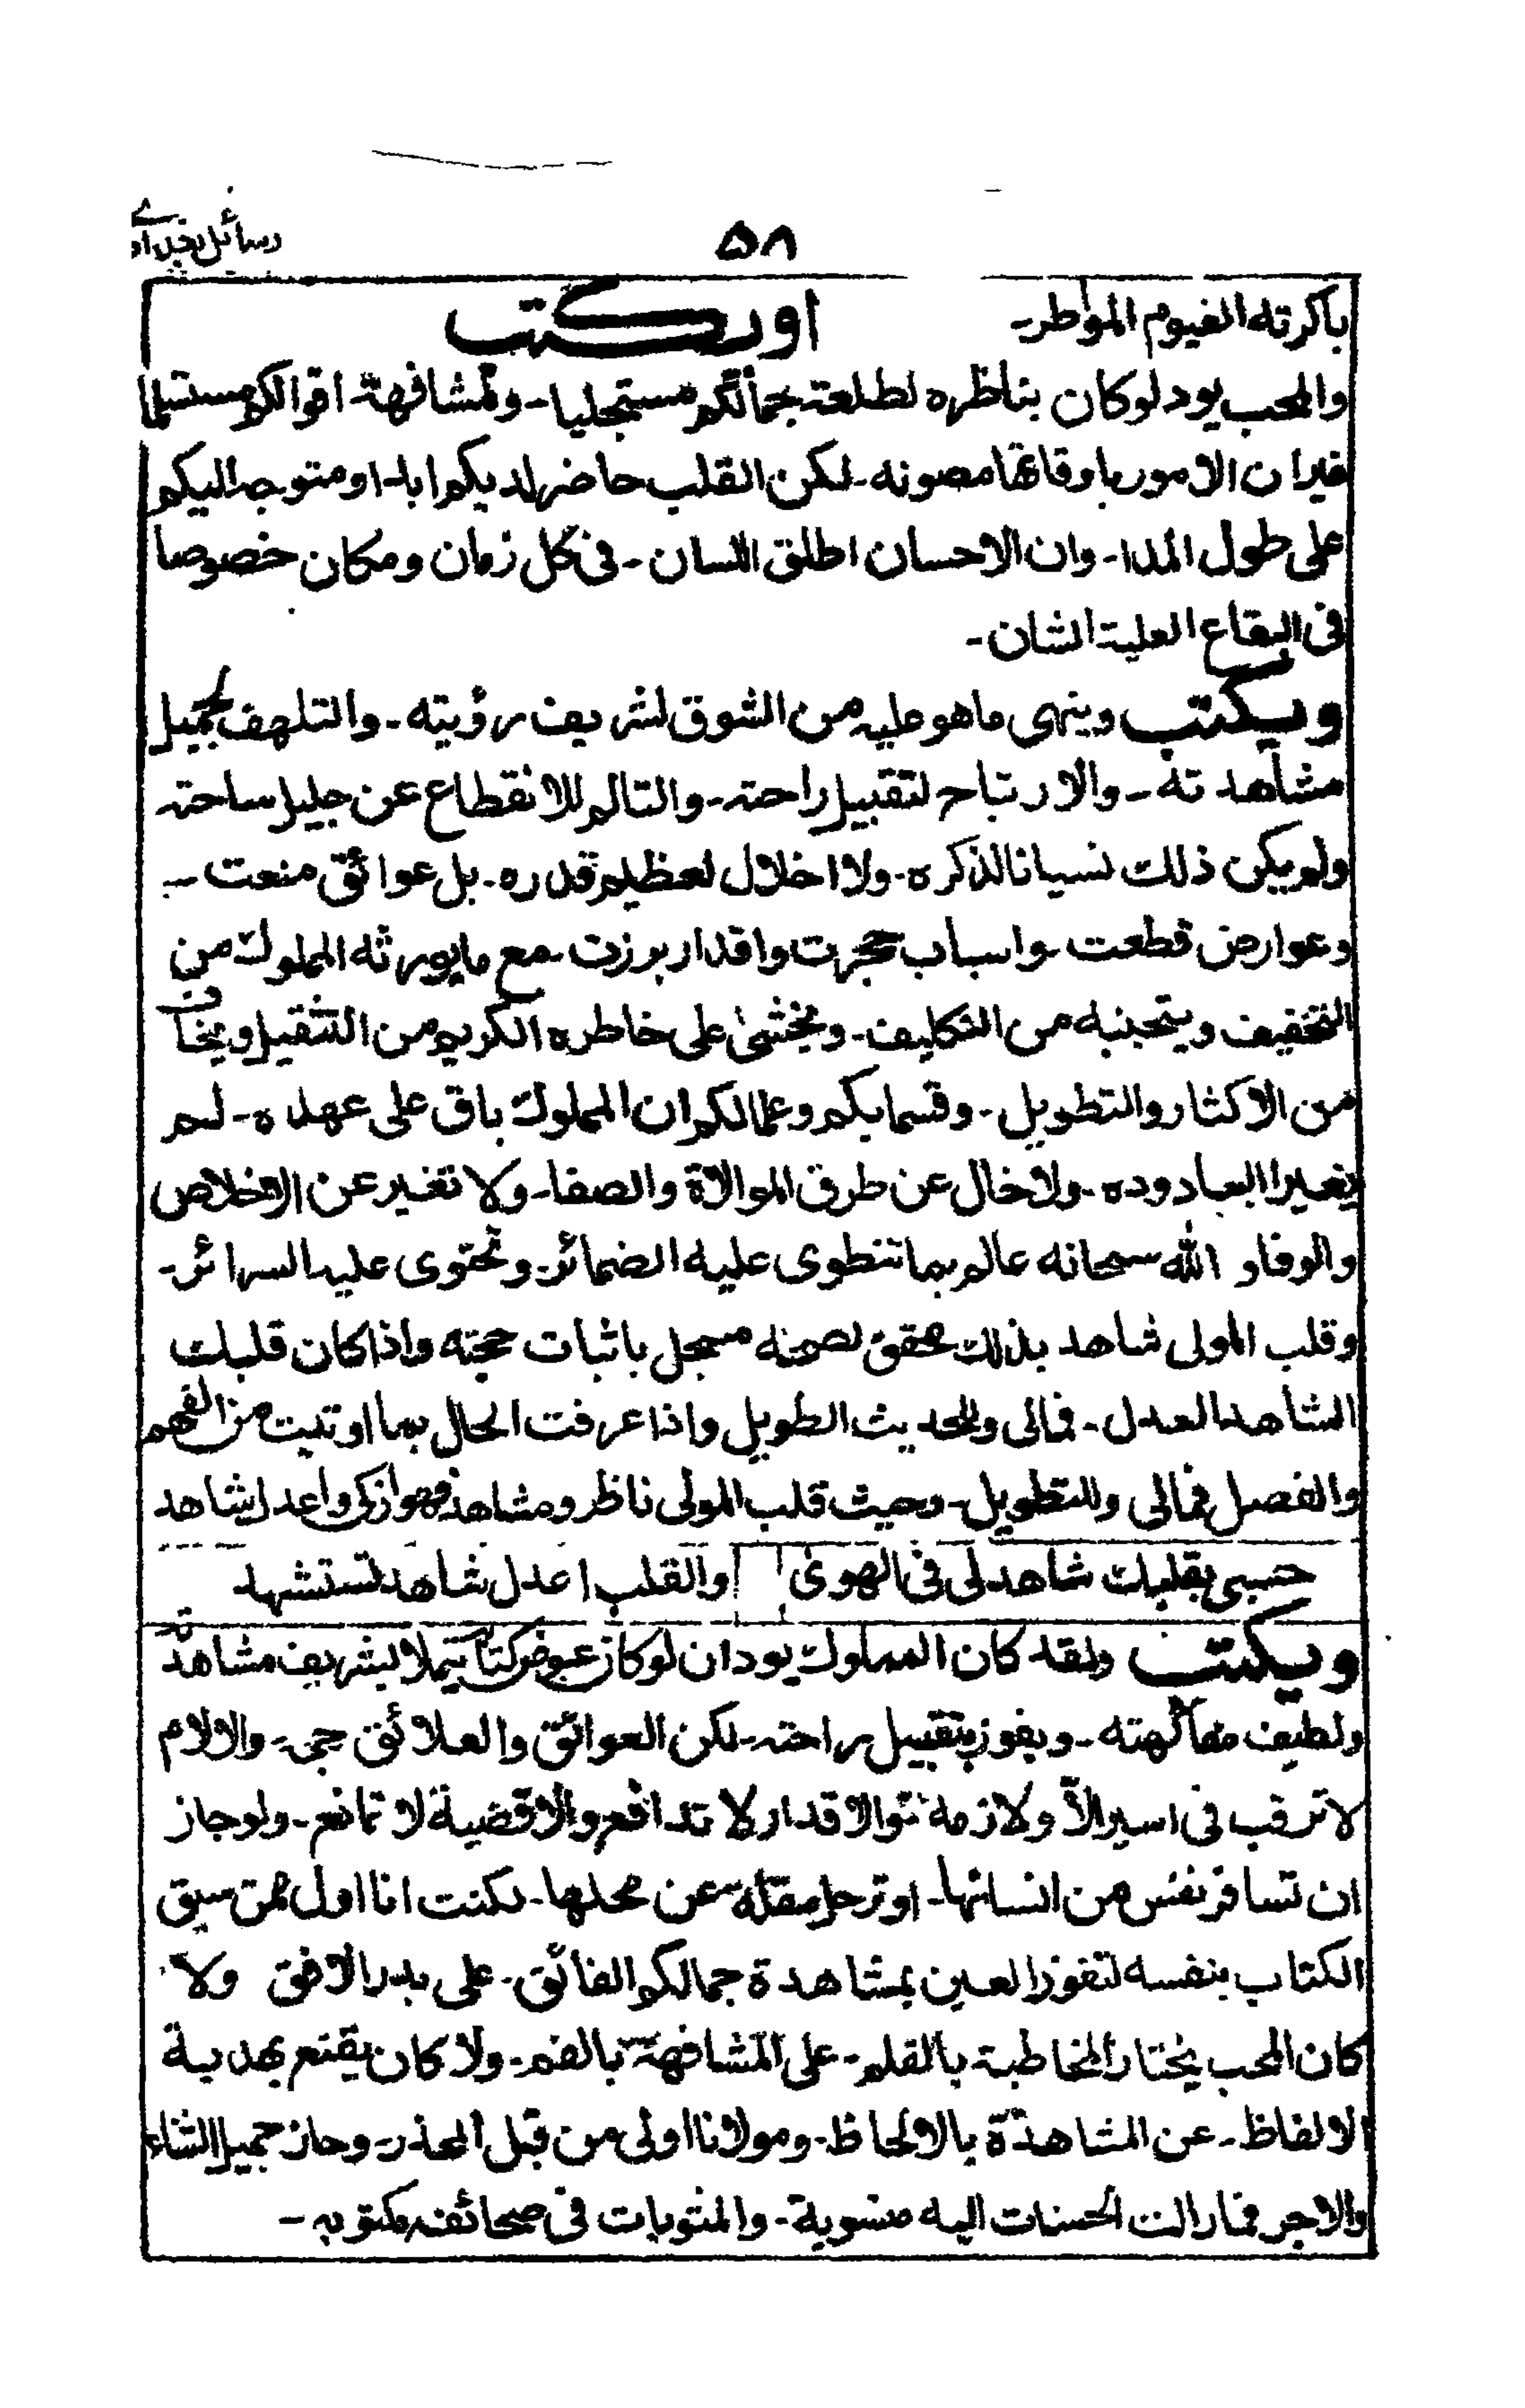 رسائل بغدادے
۵۸
باكرته الغيوم المواطر-
اويكتب
والمحب يود لوكان بناظره لطلعة جمالكم مستجليا- ولمشافهة اقوالكم مستمليا
غيران الامور باوقاتها مصونه- لكن القلب حاضر لديكم ابدا- ومتوجه اليكم
على طول المدا- وان الاحسان اطلق اللسان- فى كل زمان ومكان خصوصا
فى البقاع العلية الشان-
ويكتب وينهى ماهو عليه من الشوق لشريف رؤيته- والتلهف لجميل
مشاهدته- والارتياح لتقبيل راحته- والتالم للانقطاع عن جليل ساحته
ولم يكن ذلك نسيانا لذكره- ولا اخلال لعظيم قدره- بل عوائق منعت-
وعوارض قطعت- واسباب حجرت واقدار برزت- مع مايورثه المملوك من
التخفيف ويتجنبه من التكليف- ويخشى على خاطره الكريم من التثقيل ويخاف
من الاكثار والتطويل- وقسما بكم وعما لكم ان المملوك باق على عهده- لم
يغير البعاد وده- ولا خال عن طرق الموالاة والصفا- ولا تغير عن الاخلاص
والوفا و الله سبحانه عالم بما تنطوى عليه الضمائر- وتحتوى عليه السرائر-
وقلب المولى شاهد بذلك محقق لصحته مسجل باثبات حجته واذا كان قلبك
الشاهد العدل- فمالى وللحديث الطويل واذا عرفت الحال بما اوتيت من الفهم
والفصل فمالى وللتطويل- وحيث قلب المولى ناظر ومشاهد فهو ازكى واعدل شاهد
حسبى بقلبك شاهد لى فى الهوى والقلب اعدل شاهد تستشهد
ويكتب ولقد كان المملوك يود ان لوكان عوض كتابته يملا بشريف مشاهدته
ولطيف مفاكهته- ويفوز بتقبيل راحته- لكن العوائق والعلائق جمة- والالام
لا ترقب فى اسير الاّ ولا ذمة والاقدار لا تدافع والاقضية لا تمانع- ولو جاز
ان تسافر نفس من انسانها- او ترحل مقلة عن محلها- لكنت انا اول من سبق
الكتاب بنفسه لتفوز العين بمشاهدة جمالكم الفائق- على بدر الافق ولا
كان المحب يختار المخاطبة بالقلم- على المشافهة بالفم- ولا كان يقنع بهدية
الالفاظ- عن المشاهدة بالالحاظ- ومولانا اولى من قبل العذر- وحاز جميل الثناء
والاجر فما زالت الحسنات اليه منسوبة- والمثوبات فى صحائفه مكتوبه-